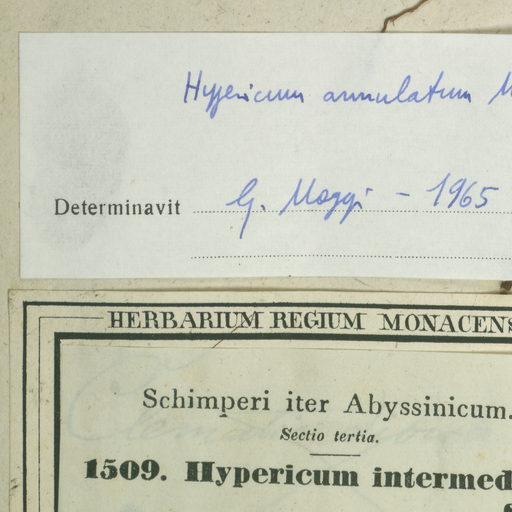 Hypericum annulatum M
Determinavit G. Moggi - 1965
HERBARIUM REGIUM MONACENS
Schimperi iter Abyssinicum.
Sectio tertia.
1509. Hypericum intermed